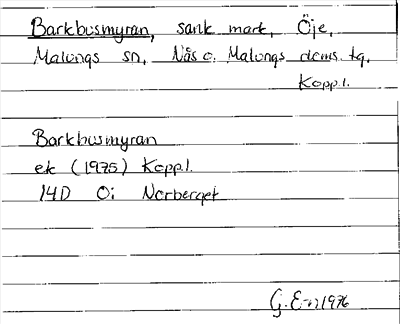 Barkbusmyran, sank mark, Öje,
Malungs sn, Nås o. Malungs doms. tg.
Kopp.l.
Barkbusmyran
ek (1975) Kopp.l.
14D 0i Norberget
G. E-n 1976